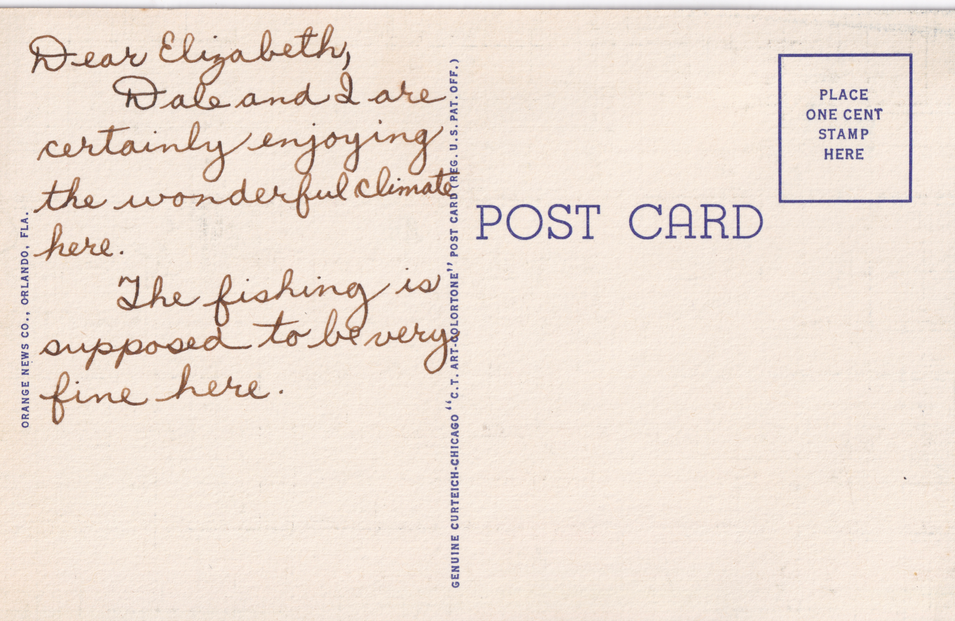 Dear Elizabeth,
Dale and I are
certainly enjoying
the wonderful climate
here.
The fishing is
supposed to be very
fine here.
ORANGE NEWS CO., ORLANDO, FLA.
GENUINE CURTEICH-CHICAGO "C.T. ART-COLORTONE" POST CARD (REG. U.S. PAT. OFF.)
POST CARD
PLACE
ONE CENT
STAMP
HERE